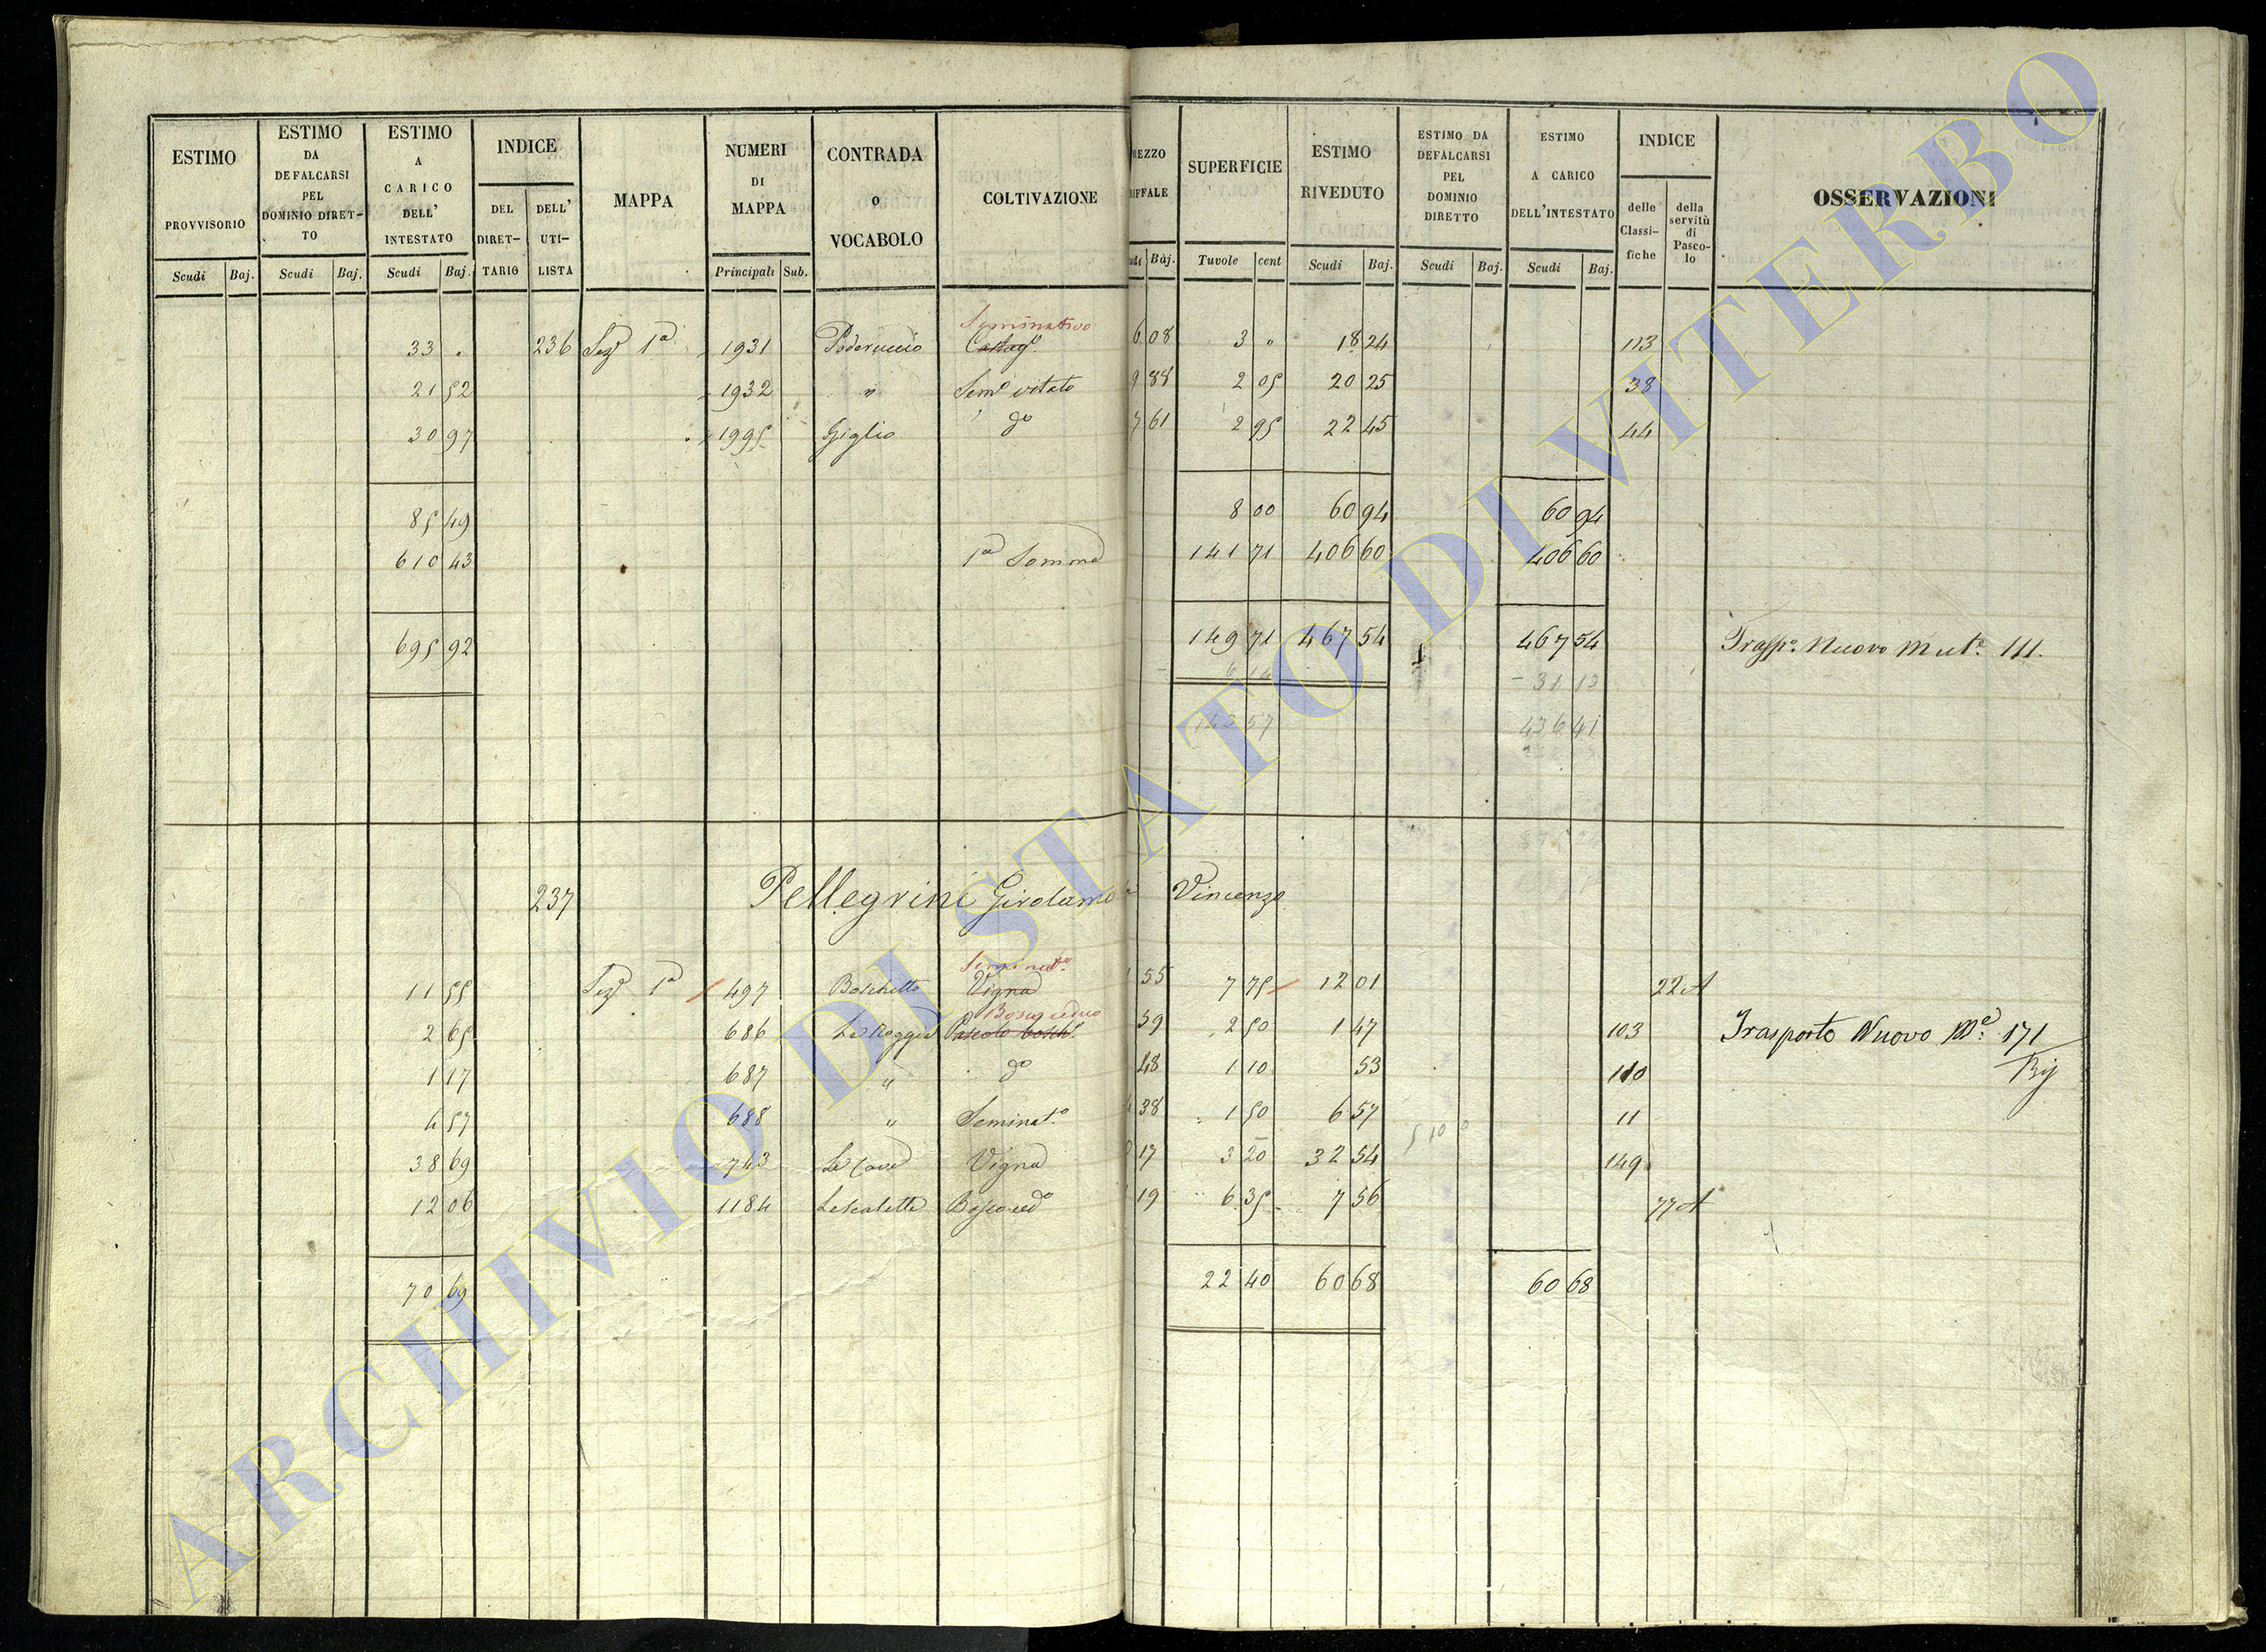 ESTIMO PROVVISORIO
ESTIMO DA DEFALCARSI PEL DOMINIO DIRET-TO
ESTIMO A CARICO DELL' INTESTATO
INDICE
DEL DIRET-TARIO
DELL' UTI-LISTA
MAPPA
NUMERI DI MAPPA
CONTRADA o VOCABOLO
COLTIVAZIONE
REZZO RIFFALE
SUPERFICIE
ESTIMO RIVEDUTO
ESTIMO DA DEFALCARSI PEL DOMINIO DIRETTO
ESTIMO A CARICO DELL'INTESTATO
INDICE
delle Classi-fiche
della servitù di Pasco-lo
OSSERVAZIONI
Scudi Baj. Scudi Baj. Scudi Baj. Principali Sub. udi Baj. Tuvole cent Scudi Baj. Scudi Baj. Scudi Baj.
Seminativo
33 " 236 Sez. 1a 1931 Poderuccio Castag.o 6 08 3 " 18 24 113
21 52 1932 " Sem.o vitato 9 88 2 05 20 25 38
30 97 1995 Giglio do 7 61 2 95 22 45 44
85 49 8 00 60 94 60 94
610 43 1a Somma 141 71 406 60 406 60
695 92 149 71 467 54 467 54 Trasp.o Nuovo Mut.e 111.
6 14 - 31 13
143 57 436 41
237 Pellegrini Girolamo Vincenzo
Seminat.o
11 55 Sez. 1a 497 Boschetto Vigna 55 7 75 12 01 22 A
Bosco ceduo
2 65 686 Le Roggie Pascolo bosch.o 59 2 50 1 47 103 Trasporto Nuovo M.e 171
1 17 687 " do 48 1 10 53 110
4 57 688 " Seminat.o 38 1 50 6 57 11
38 69 743 Le Cave Vigna 17 3 20 32 54 149
12 06 1184 Bosco ced.o 19 6 35 7 56 77 A
70 69 22 40 60 68 60 68
ARCHIVIO DI STATO DI VITERBO